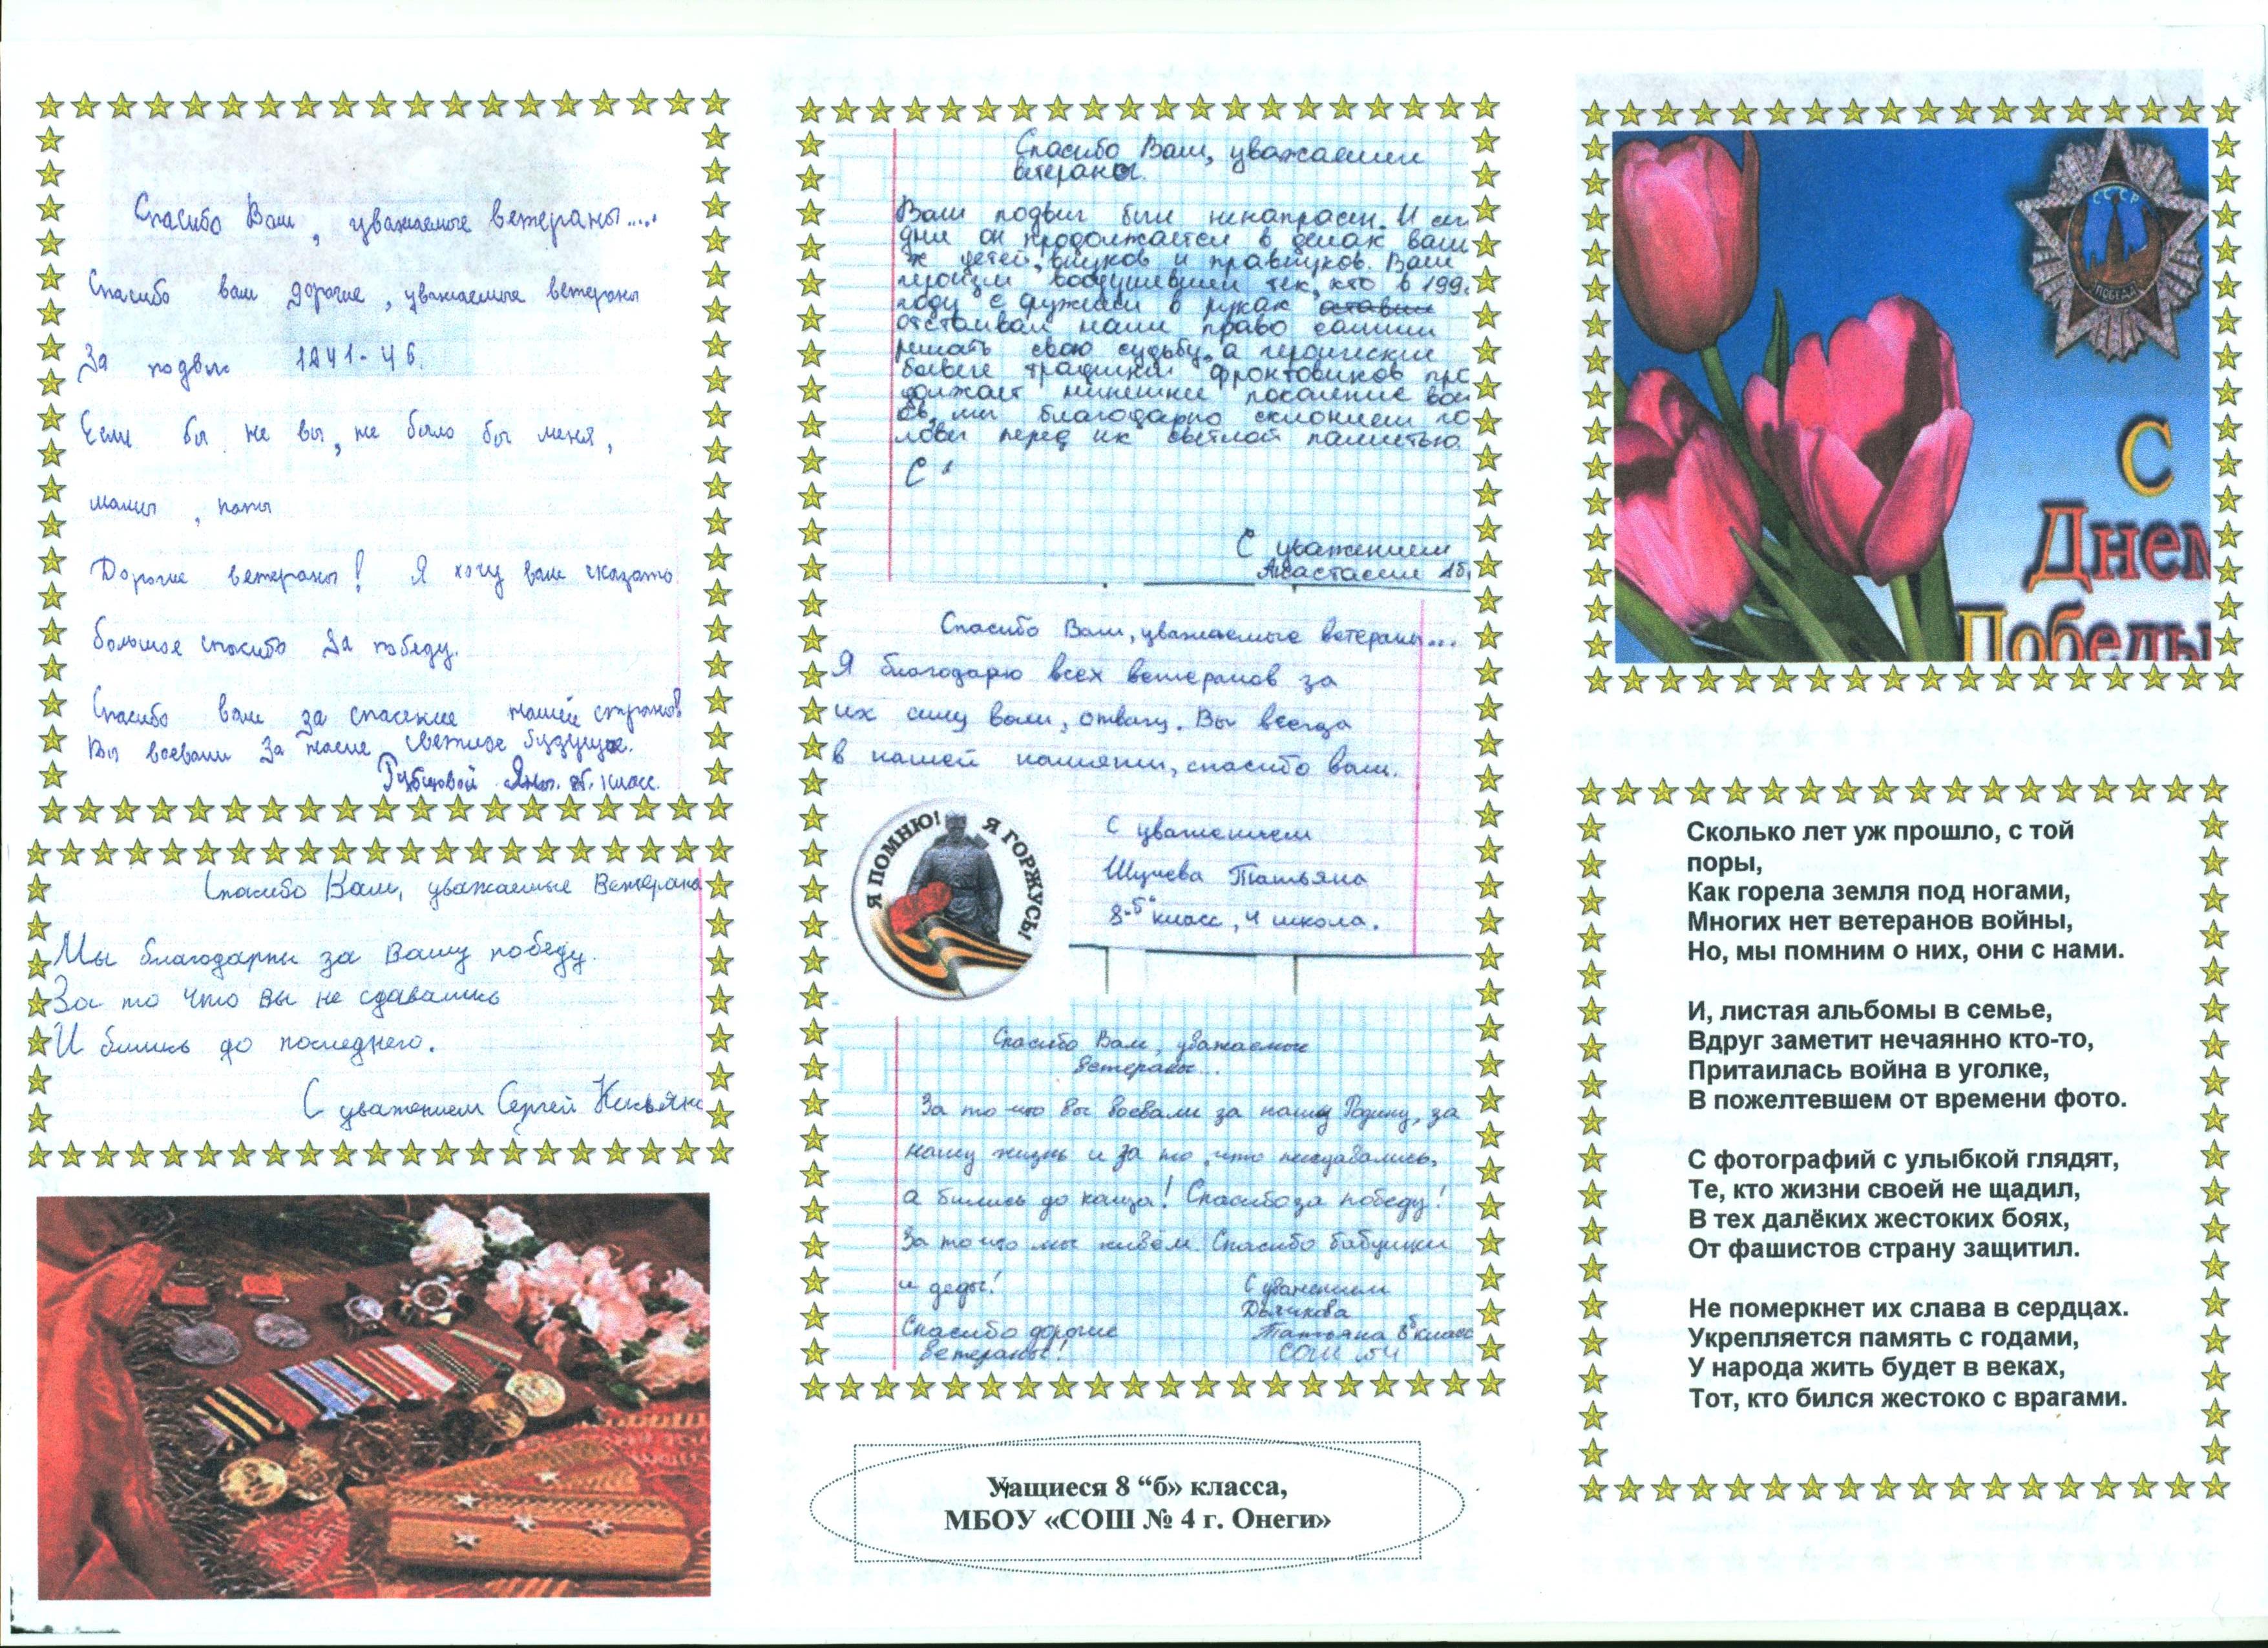 Спасибо Вам, уважаемые ветераны....
Спасибо вам дорогие, уважаемые ветераны
За подвиг 1941-45.
Если бы не вы, не было бы меня,
мамы, папы
Дорогие ветераны! Я хочу вам сказать
большое спасибо за победу.
Спасибо вам за спасение нашей страны
Вы воевали за наше светлое будущее.
Яны. 8б. класс.
Спасибо Вам, уважаемые Ветераны
Мы благодарны за Вашу победу.
За то что вы не сдавались
И бились до последнего.
С уважением Сергей
Спасибо Вам, уважаемии
ветераны.
Ваш подвиг был ненапрасен. И сег
дни он продолжается в делах ваши
х детей, внуков и правнуков. Ваш
героизм воодушевлил тех, кто в 199
году с оружием в руках
отстаивал наши право самим
решать свою судьбу, а героические
боевые традиции фронтовиков про
должает нинешнее поколение вои
ов, мы благодарно склоняем го
ловы перед их светлой памятью.
С
С уважением
Анастасии
Спасибо Вам, уважаемые ветераны...
Я благодарю всех ветеранов за
их силу воли, отвагу. Вы всегда
в нашей памяти, спасибо вам.
Я ПОМНЮ! Я ГОРЖУСЬ!
С уважением
Татьяна
8 "б" класс, 4 школа.
Спасибо Вам, уважаемые
ветераны...
За то что вы воевали за нашу Родину, за
нашу жизнь и за то, что несдавались,
а бились до конца! Спасибо за победу!
За то что мы живём. Спасибо бабушки
и деды!
С уважением
Дьячкова
Спасибо дорогие
ветераны!
Татьяна 8б класс
СОШ №4
Учащиеся 8 “б» класса,
МБОУ «СОШ № 4 г. Онеги»
СССР
ПОБЕДА
С
Днем
Победы
Сколько лет уж прошло, с той
поры,
Как горела земля под ногами,
Многих нет ветеранов войны,
Но, мы помним о них, они с нами.
И, листая альбомы в семье,
Вдруг заметит нечаянно кто-то,
Притаилась война в уголке,
В пожелтевшем от времени фото.
С фотографий с улыбкой глядят,
Те, кто жизни своей не щадил,
В тех далёких жестоких боях,
От фашистов страну защитил.
Не померкнет их слава в сердцах.
Укрепляется память с годами,
У народа жить будет в веках,
Тот, кто бился жестоко с врагами.